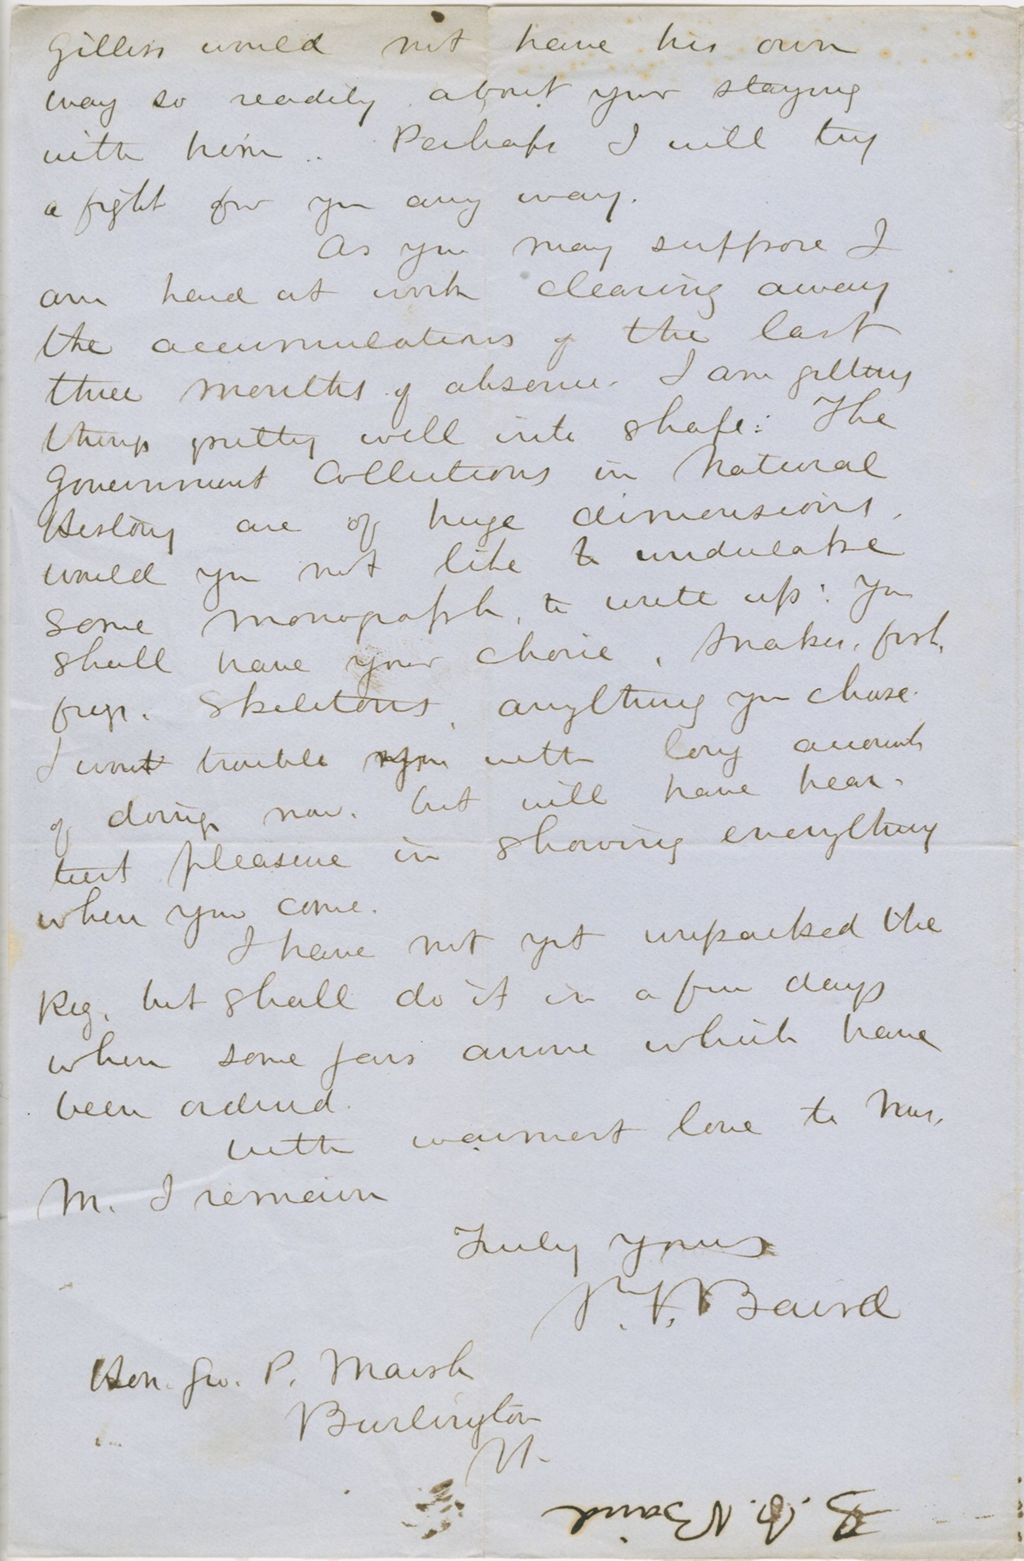 Gilliss would not have his own
way so readily about your staying
with him. Perhaps I will try
a fight for you any way.
As you may suppose I
am hard at work clearing away
the accumulations of the last
three months of absence. I am getting
things pretty well into shape: The
Government Collections in Natural
History are of huge dimensions.
would you not like to undertake
some monograph, to write up: You
shall have your choice, snakes, fish,
frogs, skeletons, anything you chose.
I wont trouble you with long accounts
of doings now, but will have hear-
tiest pleasure in showing everything
when you come.
I have not yet unpacked the
Keg, but shall do it in a few days
when some jars arrive which have
been ordered.
With warmest love to Mrs.
M. I remain
Truly yours
S. F. Baird
Hon. Geo. P. Marsh
Burlington
Vt.
Baird